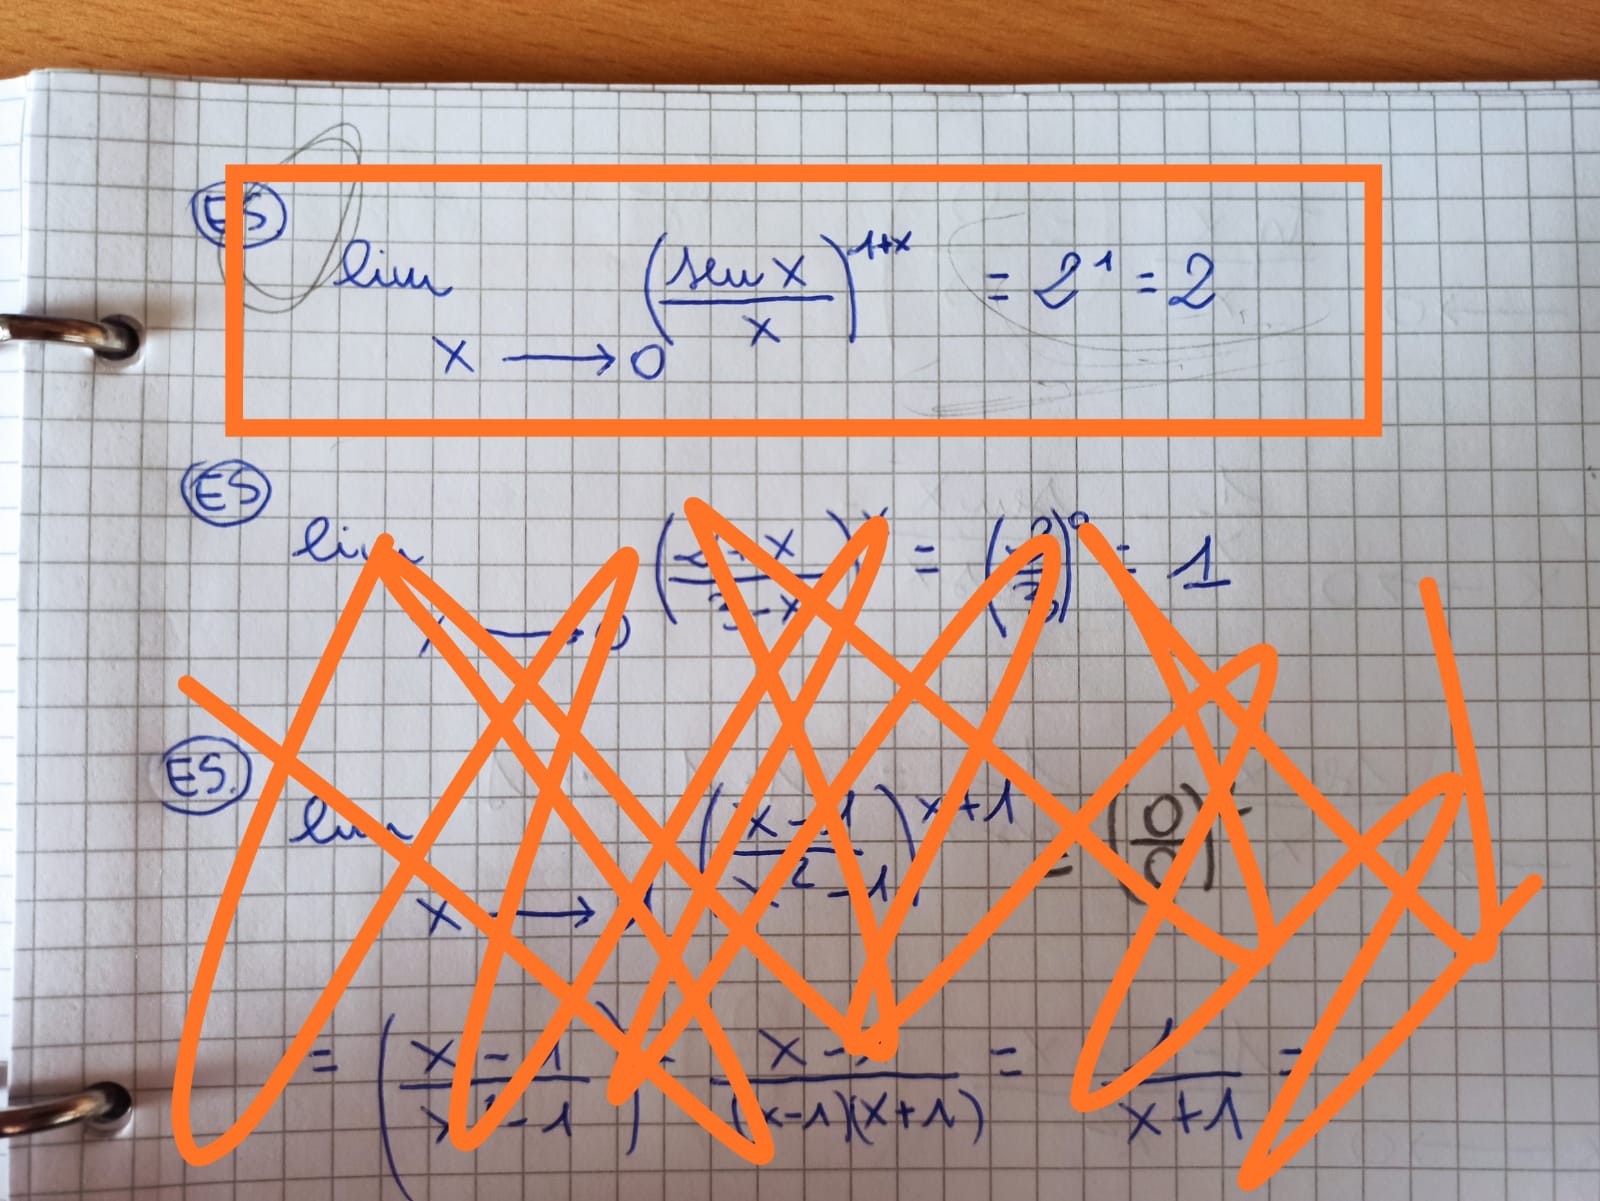 ES
lim x → 0 (sen x / x)^1+x = 2^1 = 2
ES
lim x → 0 (2+x / 3-x)^x = ( / 3)^0 = 1
ES.
lim x → (x-1 / x^2-1)^x+1 = (0/0)
= (x-1 / x^2-1) = x- / (x-1)(x+1) = 1 / x+1 =